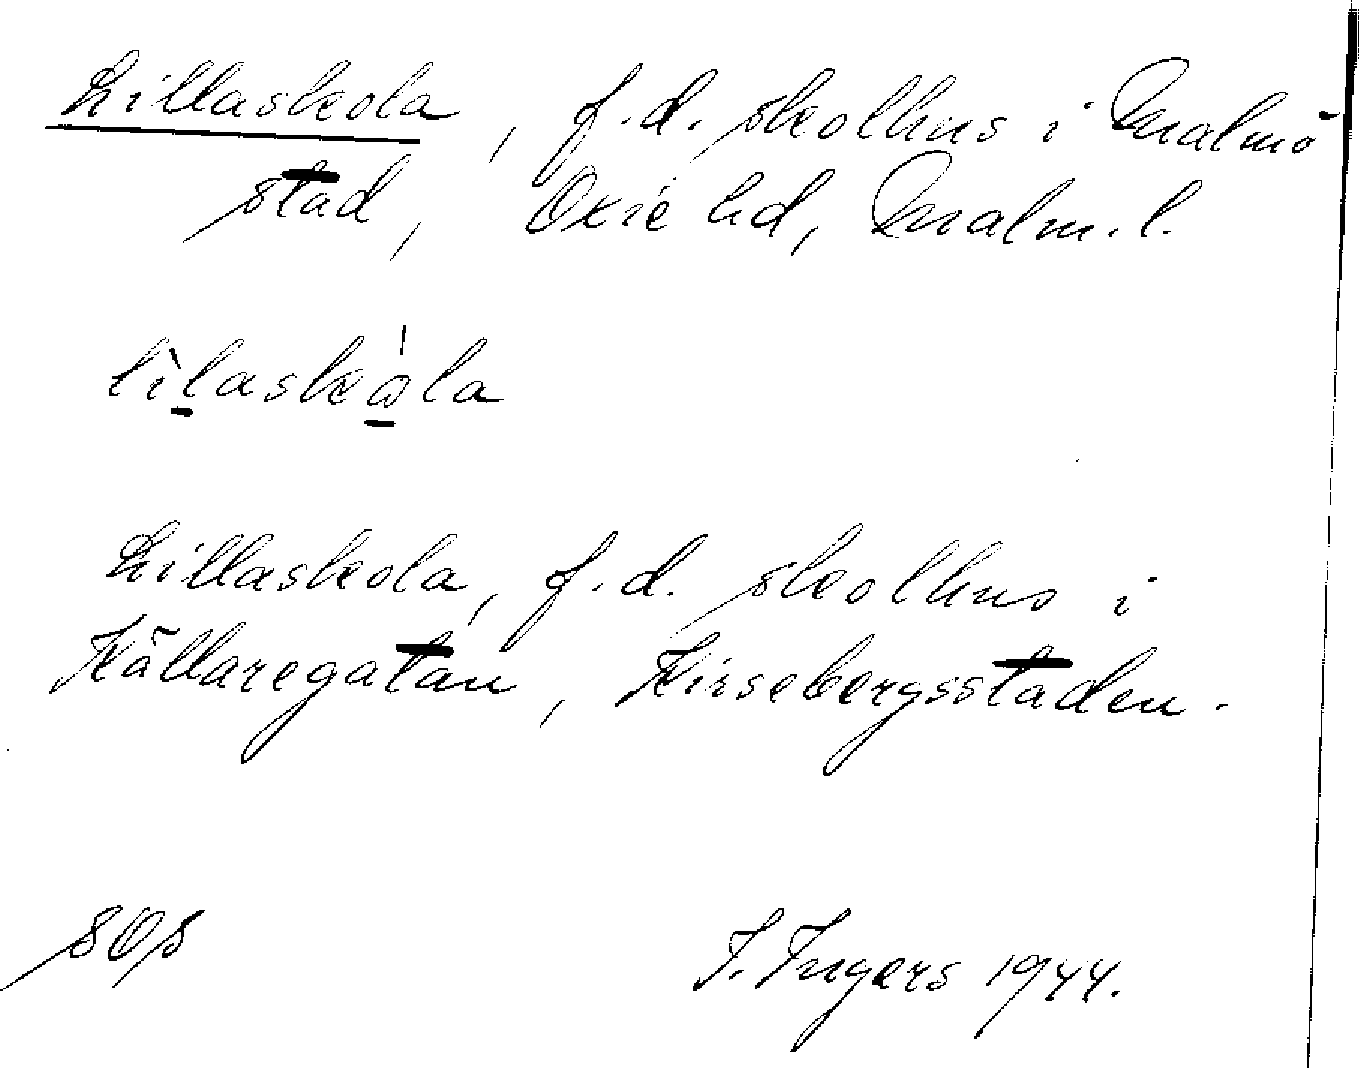 Lillaskola, f.d. skolhus i Malmö
stad, Oxie hd, Malm. l.
lìlaskola
Lillaskola, f.d. skolhus i
Källaregatan, Kirsebergsstaden.
sOs
I. Ingers 1944.